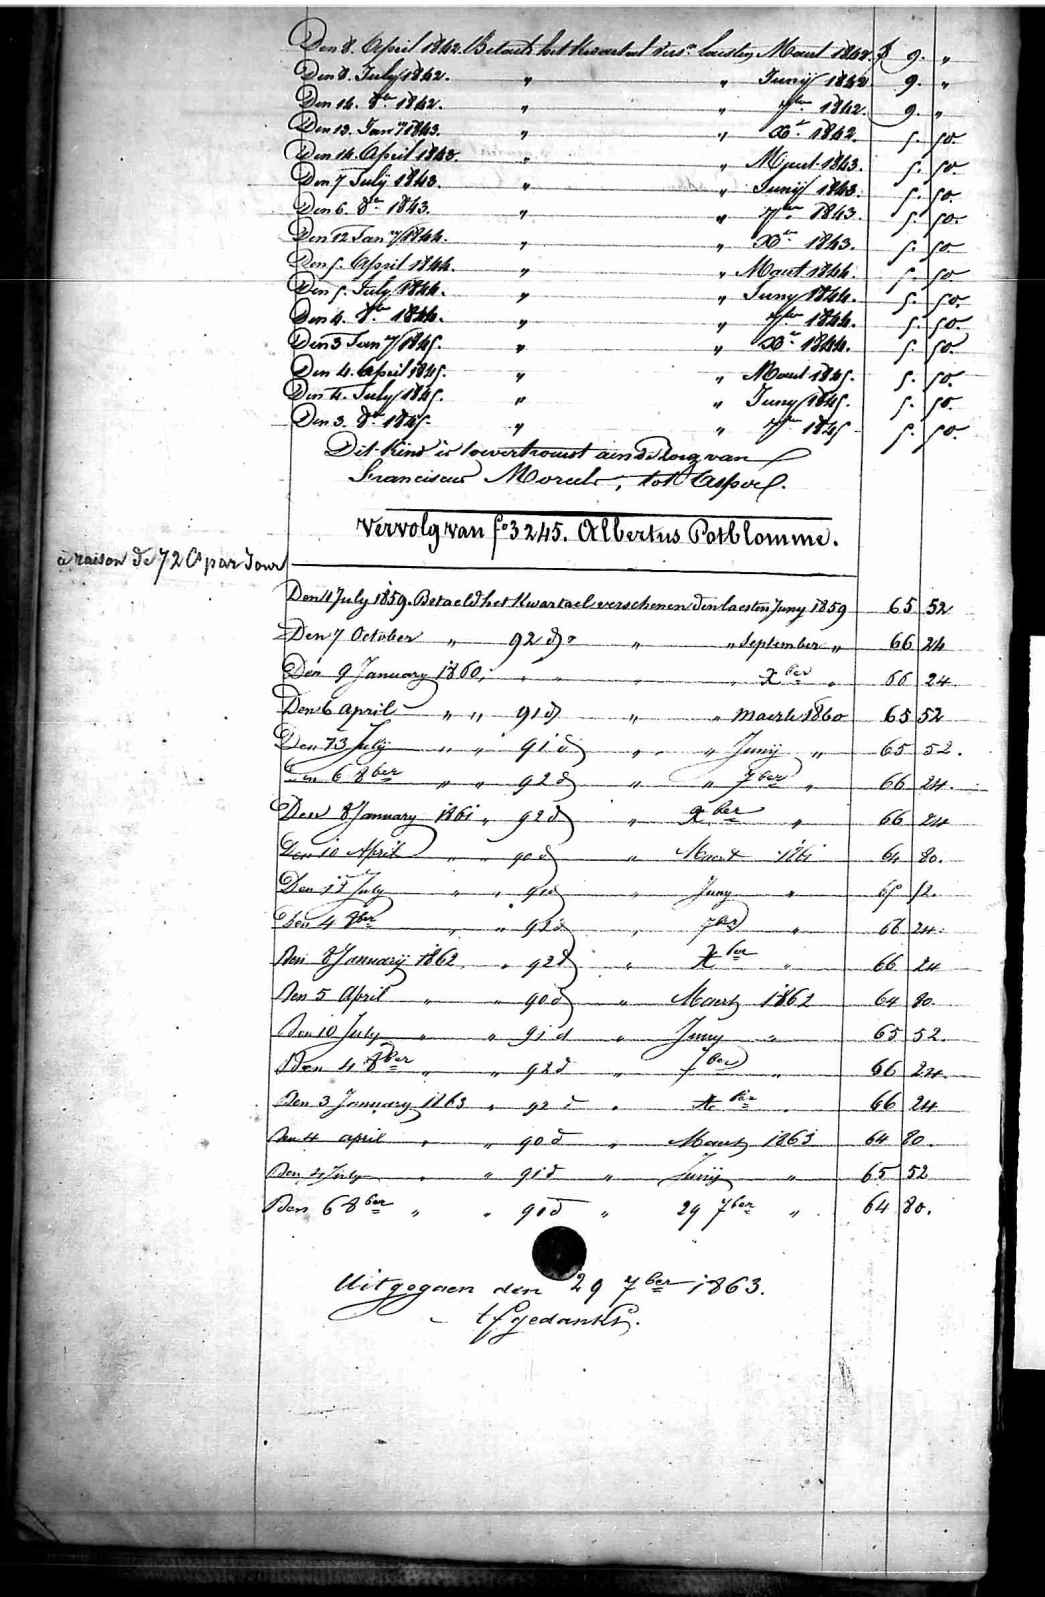 Den 8. April 1842. Betaelt het Kwartael laesten Maert 1842. f 9. "
Den 8. July 1842. " " Junij 1842 9. "
Den 14. 8er 1842. " " 7ber 1842. 9. "
Den 13. Jany 1843. " " Xr 1842. 5. 50.
Den 14. April 1843. " " Maert 1843. 5. 50.
Den 7 Julij 1843. " " Junij 1843. 5. 50.
Den 6. 8er 1843. " " 7ber 1843. 5. 50.
Den 12 Jany 1844. " " Xr 1843. 5. 50
Den 5. April 1844. " " Maert 1844. 5. 50
Den 5. July 1844. " " Juny 1844. 5. 50.
Den 4. 8er 1844. " " 7ber 1844. 5. 50.
Den 3 Jany 1845. " " Xr 1844. 5. 50.
Den 4. April 1845. " " Maert 1845. 5. 50.
Den 4. July 1845. " " Juny 1845. 5. 50.
Den 3. 8er 1845. " " 7ber 1845 5. 50.
Dit Kind is toevertrouwt aen de zorg van
Franciscus , tot Aspor.
Vervolg van fo 3245. Albertus Potblomme.
à raison de 72 Cs par Jour
Den 11 July 1859. Betaeld het Kwartael verschenen den laesten Juny 1859 65 52
Den 7 October " 92 ds " " September " 66 24
Den 9 January 1860, " " " " Xber " 66 24.
Den 6 April " " 91 d " " Maerte 1860 65 52
Den 13 July " " 91 d " " Junij " 65 52.
Den 6 8ber " " 92 d " " 7ber " 66 24.
Den 8 January 1861 " 92 d " Xber " 66 24
Den 10 April " " 90 d " Maert 1861 64 80.
Den 13 July " " 91 d " Juny " 65 52.
Den 4 8ber " " 92 d " 7ber " 66 24.
Den 8 Januarij 1862 " 92 d " Xber " 66 24
Den 5 April " " 90 d " Maert 1862 64 80.
Den 10 July " " 91 d " Juny " 65 52.
Den 4 8ber " " 92 d " 7ber " 66 24.
Den 3 January 1863 " 92 d " Xber " 66 24
Den 4 april " " 90 d " Maert 1863 64 80.
Den 4 July " " 91 d " Junij " 65 52
Den 6 8ber " " 90 d " 29 7ber " 64 80.
Uitgegaen den 29 7ber 1863.
Afgedankt.